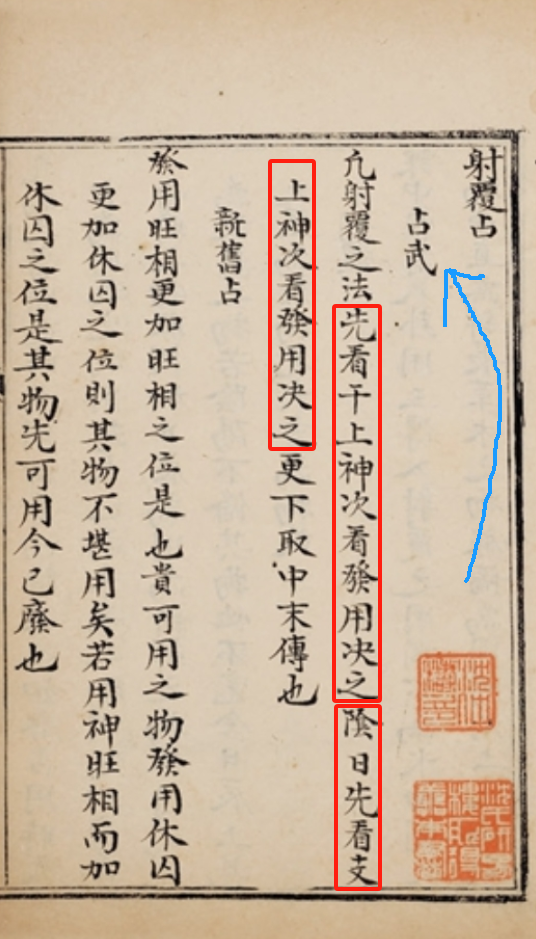 射覆占
占武
凣射覆之法先看干上神次看發用决之陰日先看支
上神次看發用决之更下取中末傳也
新舊占
發用旺相更加旺相之位是也貴可用之物發用休囚
更加休囚之位則其物不堪用矣若用神旺相而加
休囚之位是其物先可用今已廢也